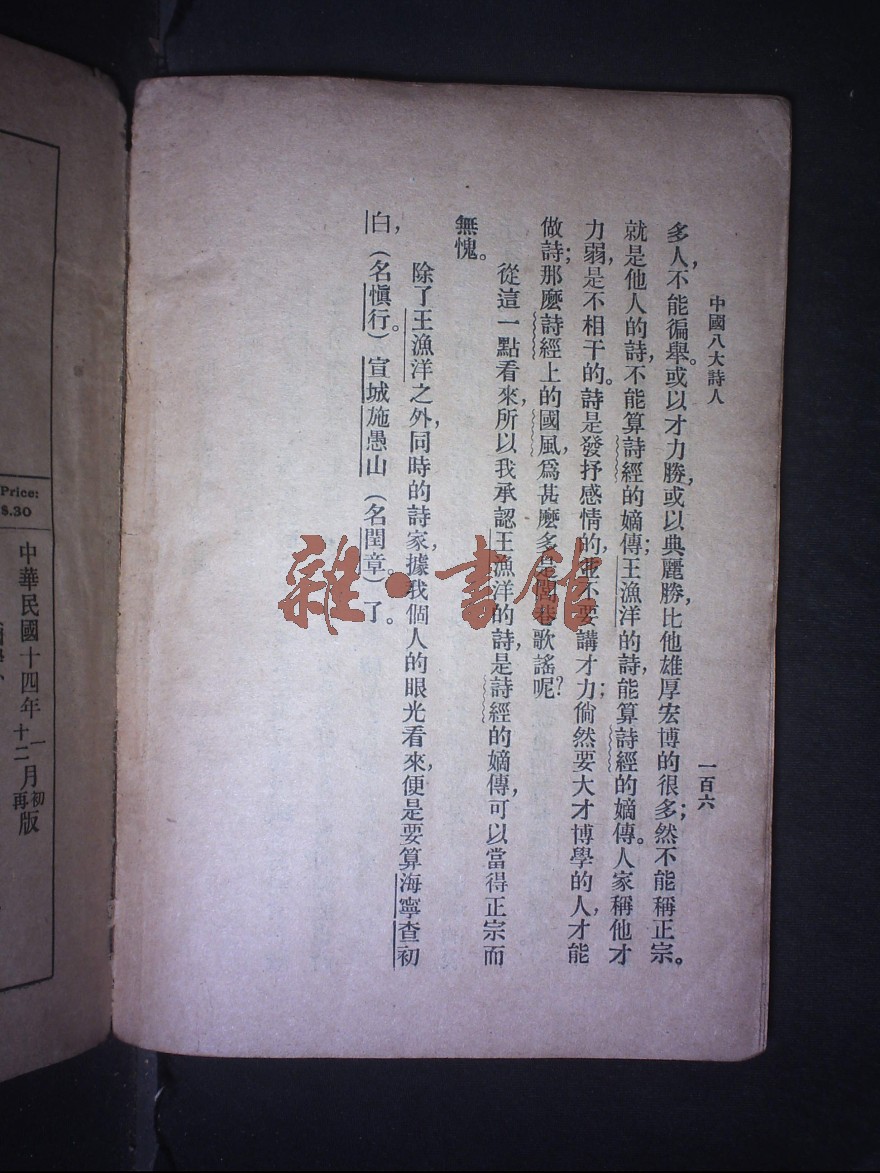 中國八大詩人
一百六
多人,不能徧舉。或以才力勝,或以典麗勝,比他雄厚宏博的很多;然不能稱正宗。
就是他人的詩,不能算詩經的嫡傳;王漁洋的詩,能算詩經的嫡傳。人家稱他才
力弱,是不相干的。詩是發抒感情的,並不要講才力;倘然要大才博學的人,才能
做詩;那麼詩經上的國風,爲甚麼多是閭巷歌謠呢?
從這一點看來,所以我承認王漁洋的詩,是詩經的嫡傳,可以當得正宗而
無愧。
除了王漁洋之外,同時的詩家,據我個人的眼光看來,便是要算海寧查初
白,(名慎行)。宣城施愚山(名閏章)。了。
雜·書館
Price:
$.30
中華民國十四年
一月初版
十二月再版